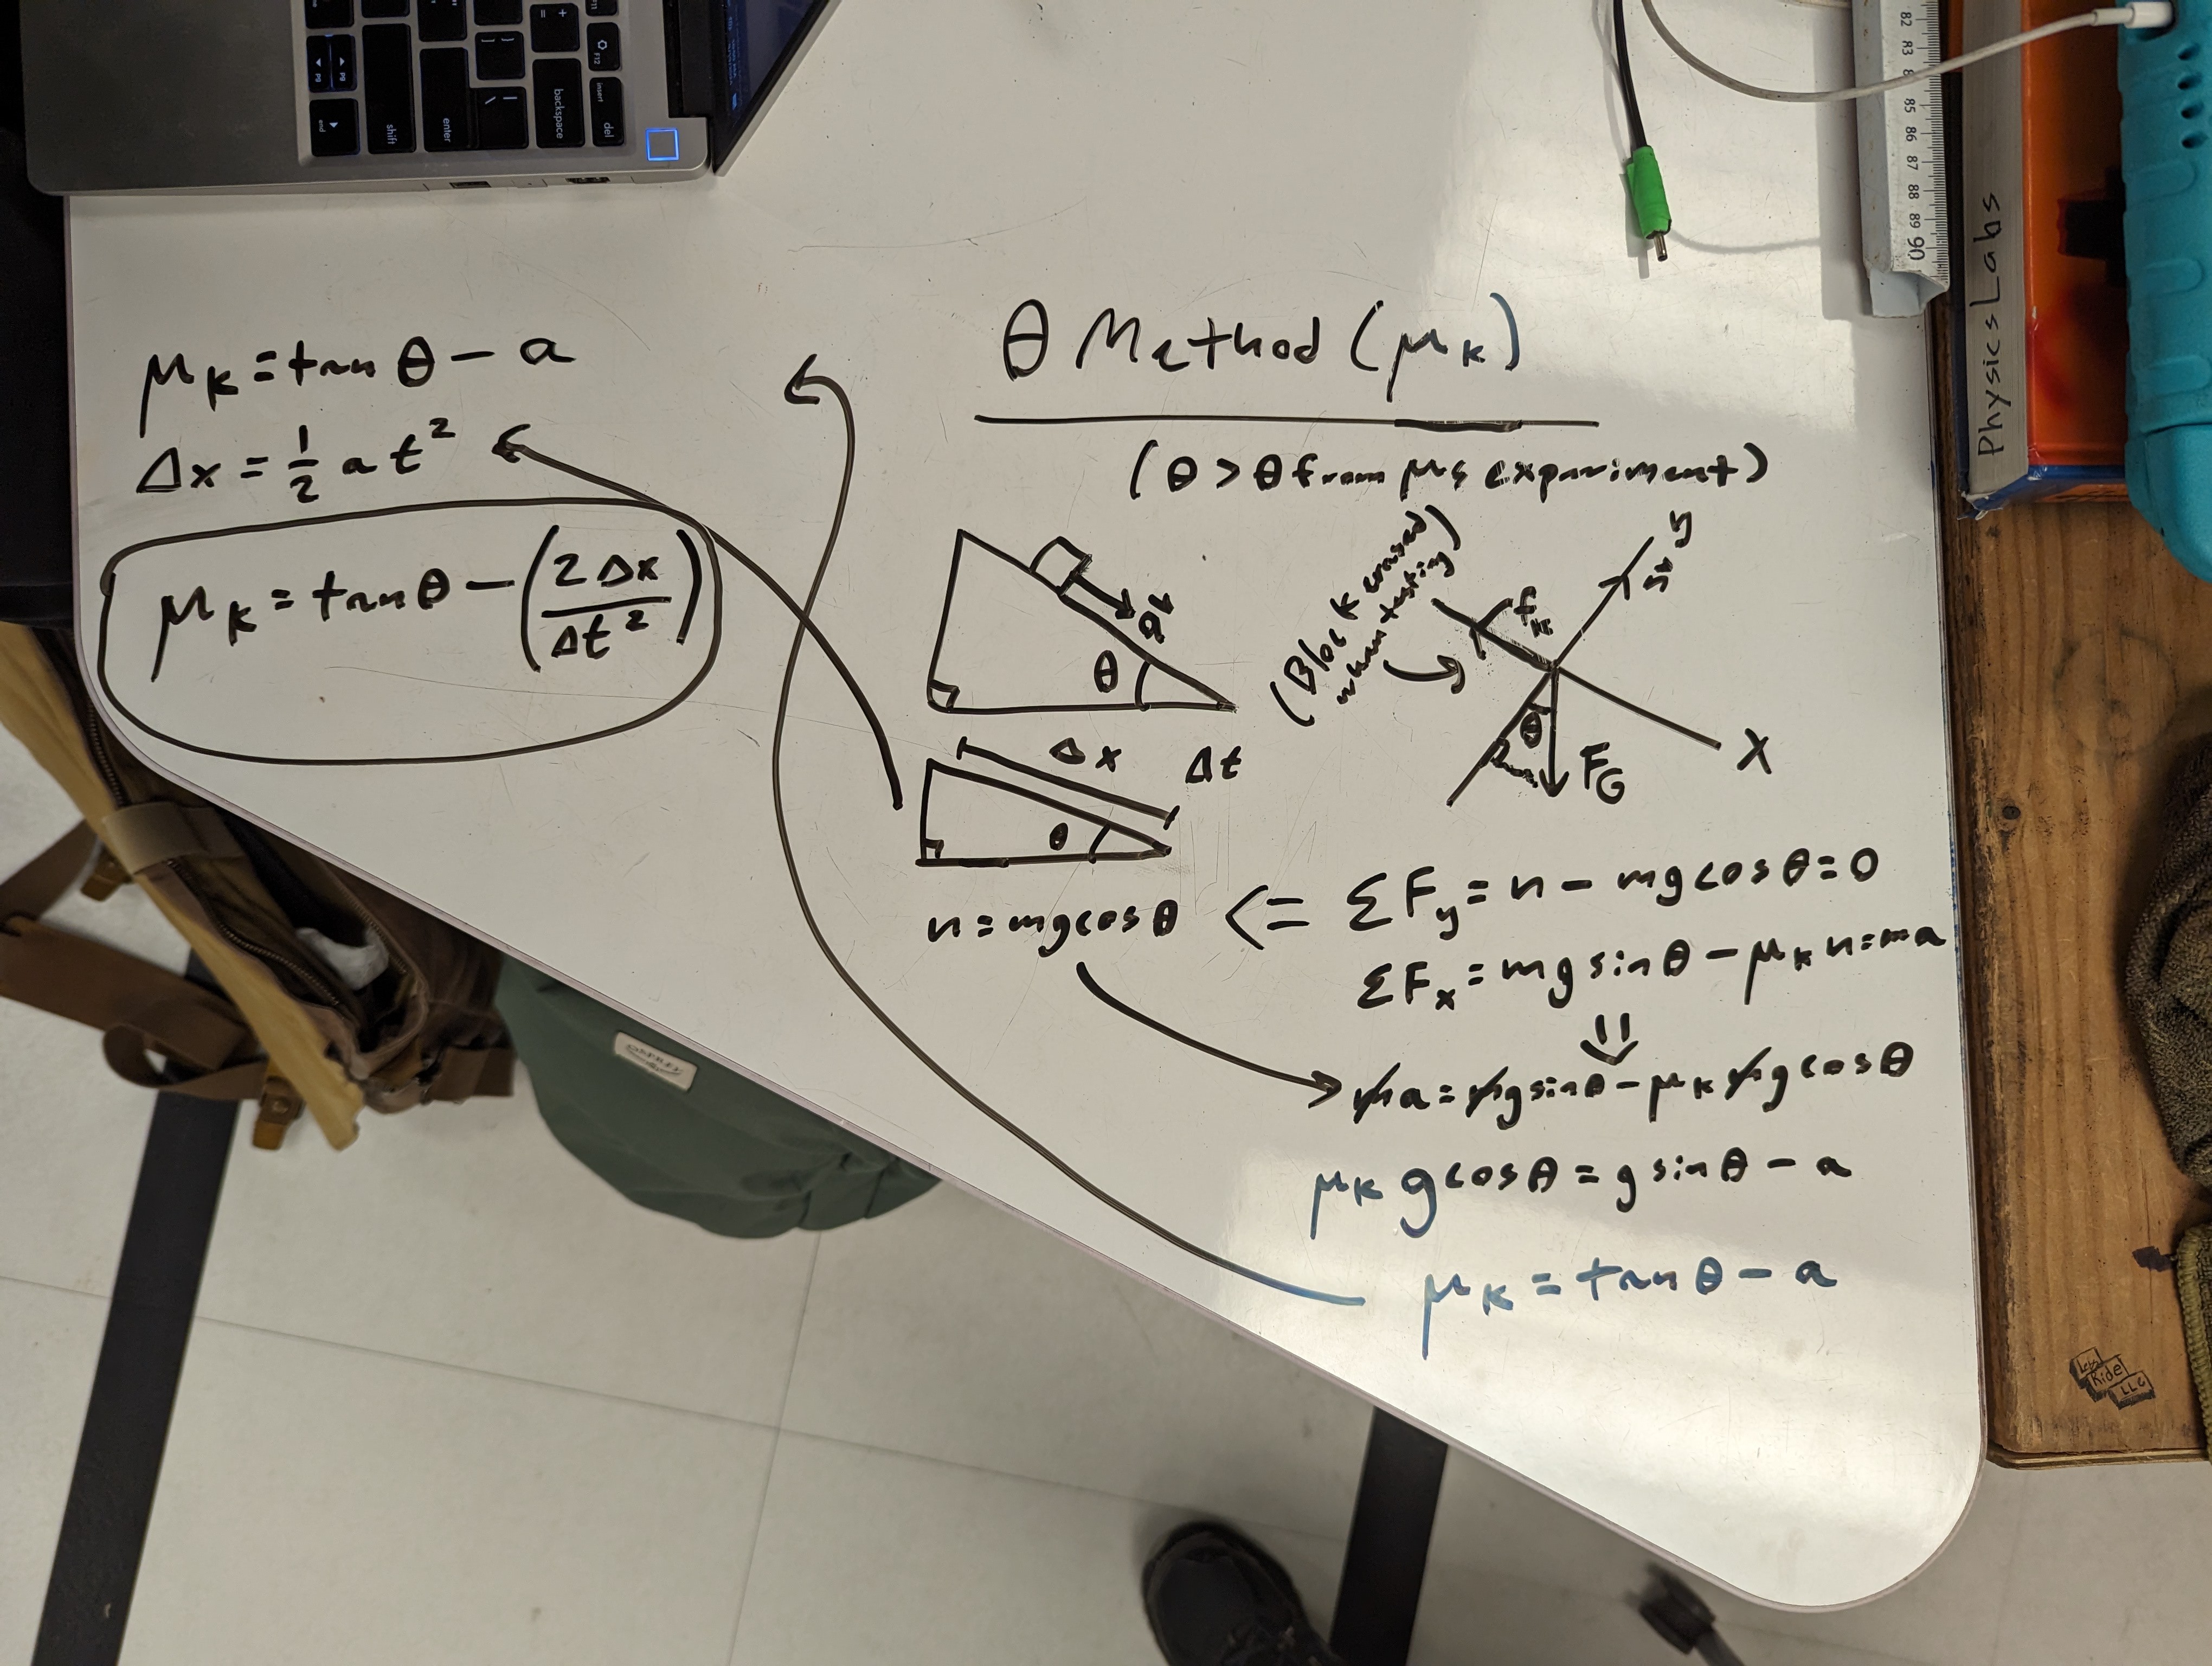 θ Method (μₖ)
(θ > θ from μₛ experiment)
a
θ
(Block erased
when testing)
fₖ
n
y
θ
F_G
x
Δx
Δt
θ
n = mg cos θ <= ΣF_y = n - mg cos θ = 0
ΣFₓ = mg sin θ - μₖ n = ma
ma = mg sin θ - μₖ mg cos θ
μₖ g cos θ = g sin θ - a
μₖ = tan θ - a
μₖ = tan θ - a
Δx = 1/2 a t²
μₖ = tan θ - (2Δx/Δt²)
Physics Labs
82
83
85
86
87
88
89
90
pg
pg
end
shift
enter
backspace
insert
del
F12
OSPREY
Kidel
LLC